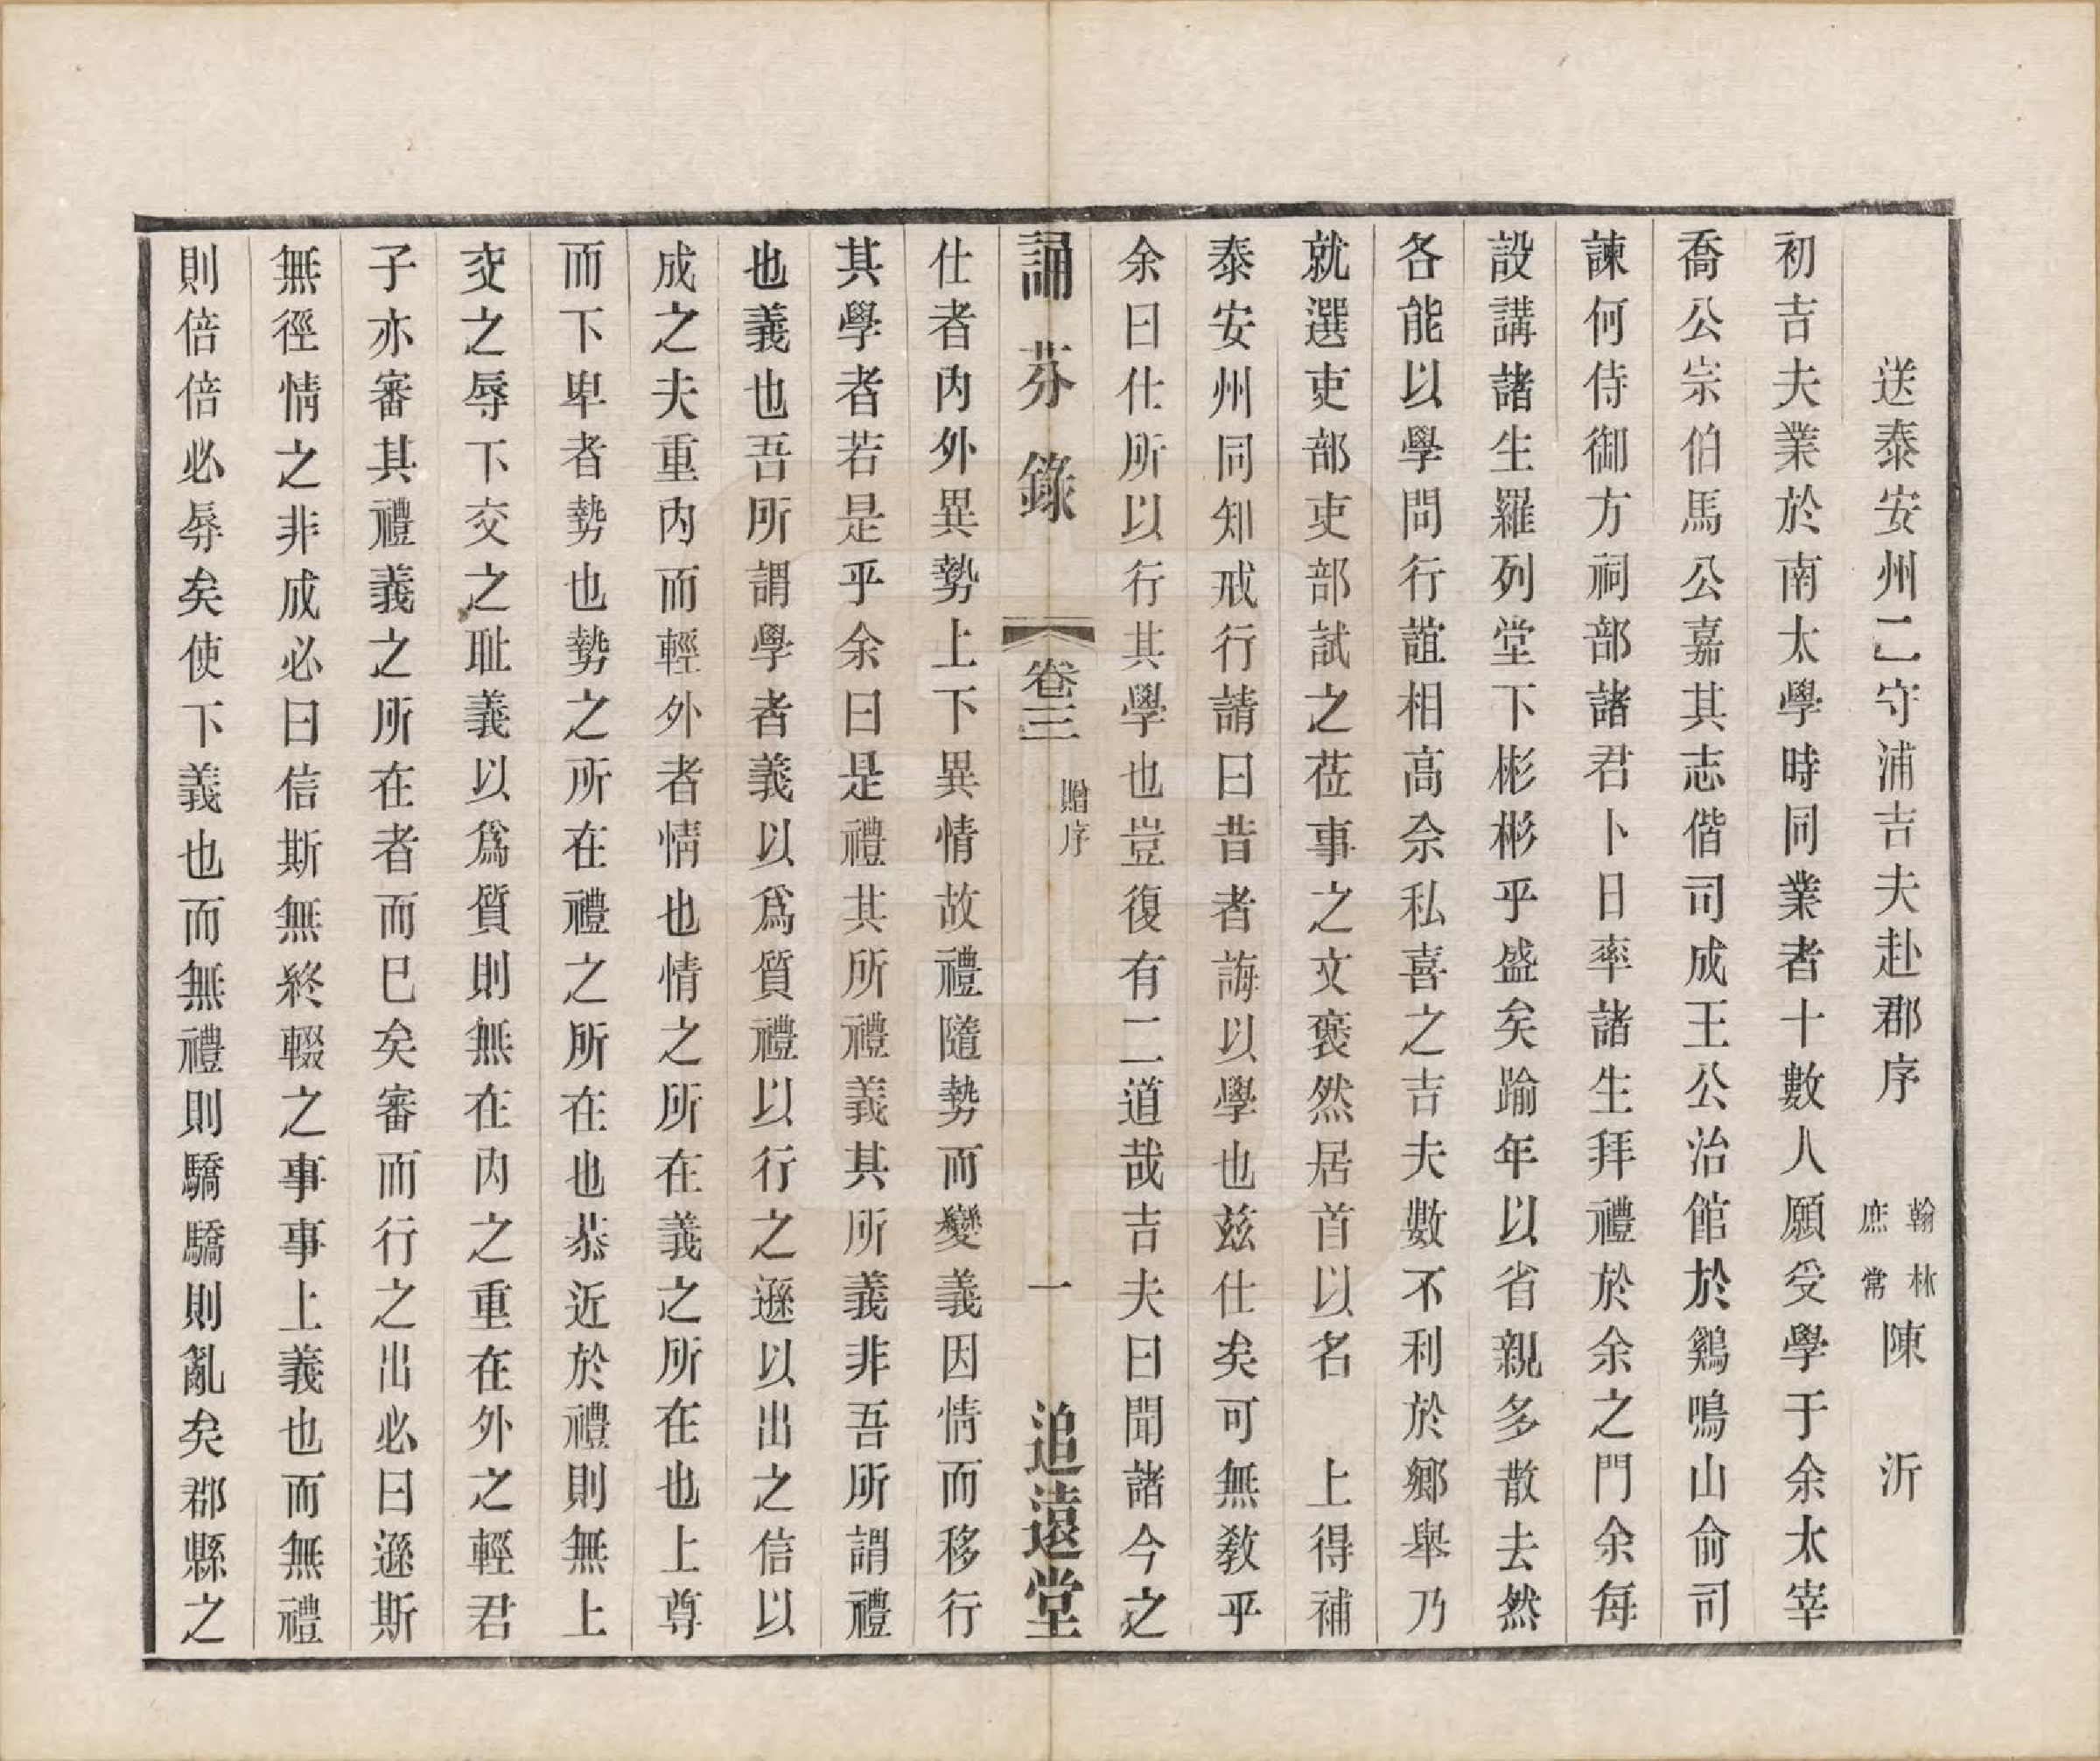 送泰安州二守浦吉夫赴郡序　翰林庶常陳　沂
初吉夫業於南太學時同業者十數人願受學于余太宰
喬公宗伯馬公嘉其志偕司成王公治館於鷄鳴山俞司
諫何侍御方祠部諸君卜日率諸生拜禮於余之門余每
設講諸生羅列堂下彬彬乎盛矣踰年以省親多散去然
各能以學問行誼相高余私喜之吉夫數不利於鄉舉乃
就選吏部吏部試之莅事之文褎然居首以名　上得補
泰安州同知戒行請曰昔者誨以學也兹仕矣可無教乎
余曰仕所以行其學也豈復有二道哉吉夫曰聞諸今之
誦芬錄　卷三　贈序　一　追遠堂
仕者內外異勢上下異情故禮隨勢而變義因情而移行
其學者若是乎余曰是禮其所禮義其所義非吾所謂禮
也義也吾所謂學者義以爲質禮以行之遜以出之信以
成之夫重內而輕外者情也情之所在義之所在也上尊
而下卑者勢也勢之所在禮之所在也恭近於禮則無上
交之辱下交之耻義以爲質則無在內之重在外之輕君
子亦審其禮義之所在者而已矣審而行之出必曰遜斯
無徑情之非成必曰信斯無終輟之事事上義也而無禮
則倍倍必辱矣使下義也而無禮則驕驕則亂矣郡縣之